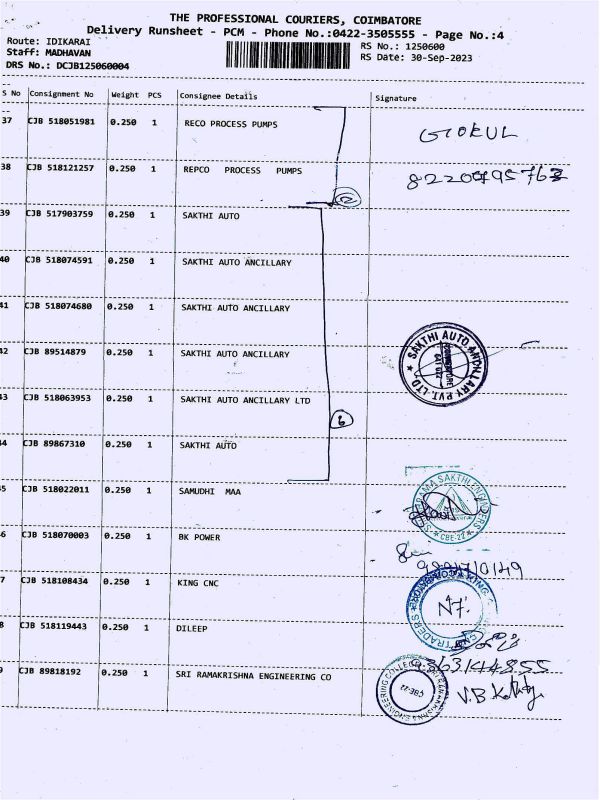 THE PROFESSIONAL COURIERS, COIMBATORE
Delivery Runsheet - PCM - Phone No.:0422-3505555 - Page No.:4
Route: IDIKARAI
RS No.: 1250600
Staff: MADHAVAN
RS Date: 30-Sep-2023
DRS No.: DCJB125060004
S No Consignment No Weight PCS Consignee Details Signature
37 CJB 518051981 0.250 1 RECO PROCESS PUMPS GOKUL
38 CJB 518121257 0.250 1 REPCO PROCESS PUMPS
39 CJB 517903759 0.250 1 SAKTHI AUTO
40 CJB 518074591 0.250 1 SAKTHI AUTO ANCILLARY
41 CJB 518074680 0.250 1 SAKTHI AUTO ANCILLARY
42 CJB 89514879 0.250 1 SAKTHI AUTO ANCILLARY
SAKTHI AUTO ANCILLARY PVT. LTD
43 CJB 518063953 0.250 1 SAKTHI AUTO ANCILLARY LTD
6
44 CJB 89867310 0.250 1 SAKTHI AUTO
45 CJB 518022011 0.250 1 SAMUDHI MAA
SAKTHI ENGINEERS
CBE-22
6 CJB 518070003 0.250 1 BK POWER
7 CJB 518108434 0.250 1 KING CNC
TRADERS
8 CJB 518119443 0.250 1 DILEEP
9 CJB 89818192 0.250 1 SRI RAMAKRISHNA ENGINEERING CO
SRI RAMAKRISHNA ENGINEERING COLLEGE
CBE-22